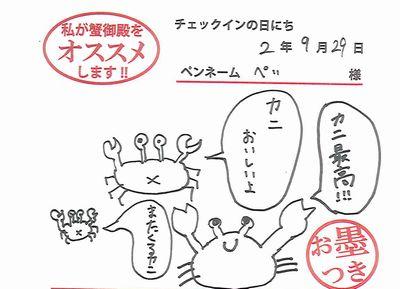 私が蟹御殿を
オススメ
します!!
チェックインの日にち
2年9月29日
ペンネーム ぺぃ 様
カニ
おいしいよ
カニ最高!!!
またくるカニ
お墨
つき